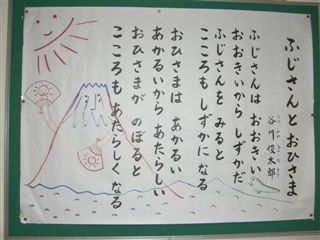 ふじさんと おひさま
谷川 俊太郎
ふじさんは おおきい
おおきいから しずかだ
ふじさんを みると
こころも しずかになる
おひさまは あかるい
あかるいから あたらしい
おひさまが のぼると
こころも あたらしく なる